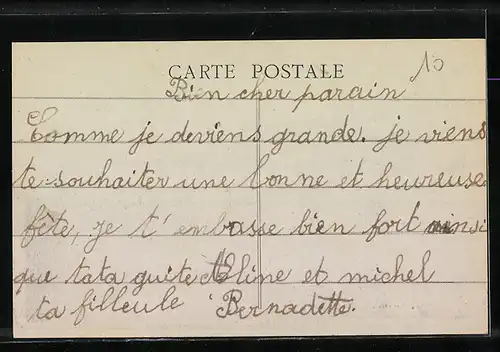 10
CARTE POSTALE
Bien cher parain
Comme je deviens grande. je viens
te souhaiter une bonne et heureuse
fête, je t'embasse bien fort ainsi
que tata guite Aline et michel
ta filleule Bernadette.